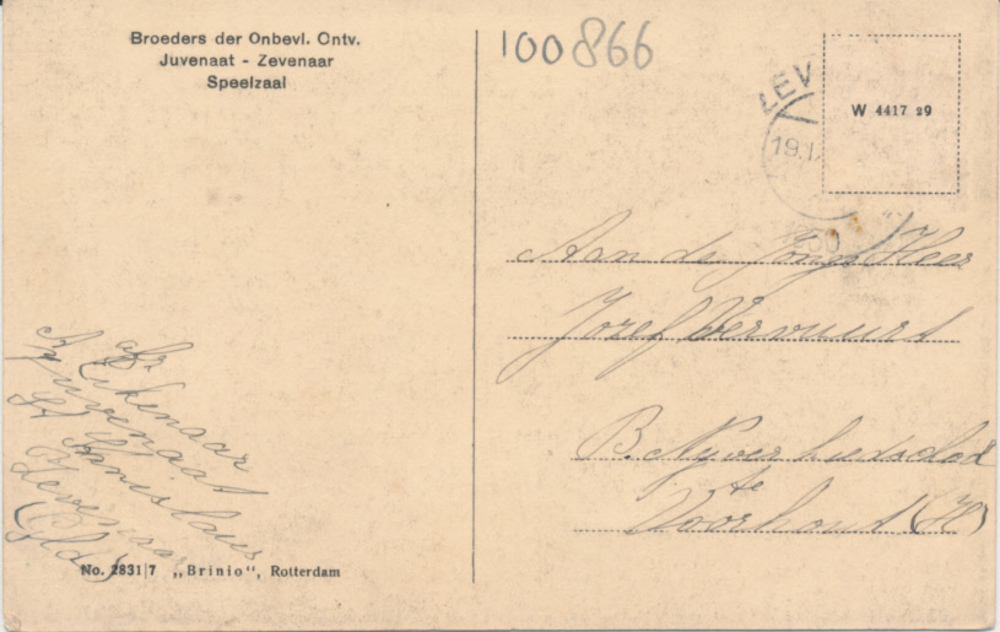 Broeders der Onbevl. Ontv.
Juvenaat - Zevenaar
Speelzaal
100866
ZEV
19.I.
W 4417 29
Aan de Jonge Heer
Jozef Vervuurt
B.
te
Voorhout (H)
afz.
A Eikenaar
Juvenaat
St Stanislaus
Zevenaar
(Gld)
No. 2831|7 „Brinio“, Rotterdam